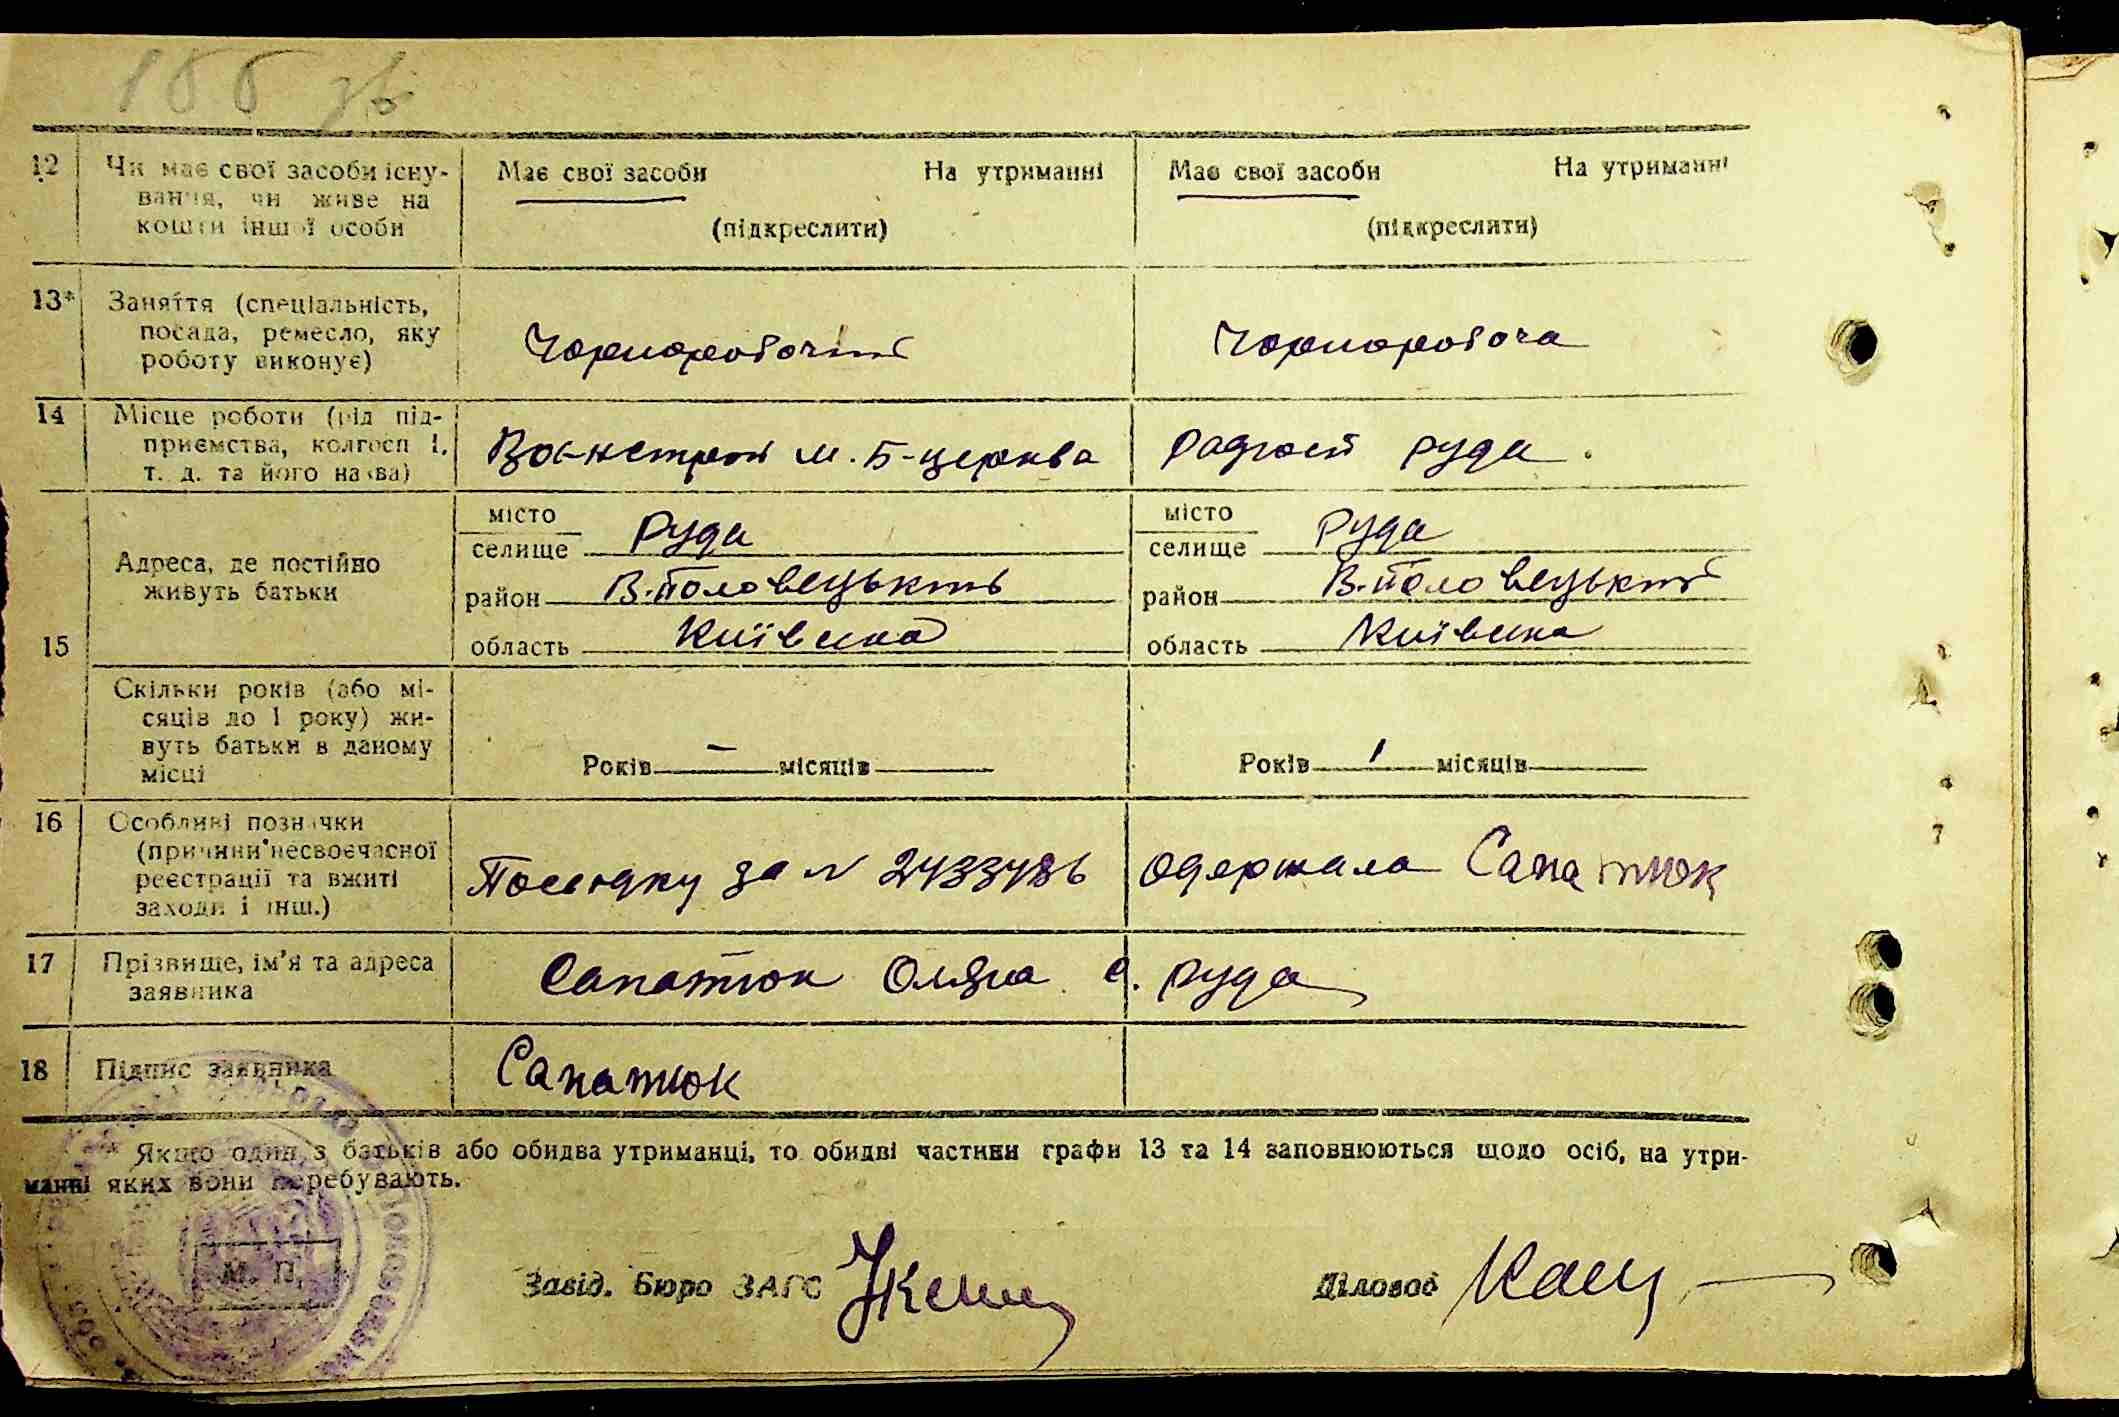 155 зв
12 Чи має свої засоби існу- Має свої засоби На утриманні Має свої засоби На утриманні
вання, чи живе на
кошти іншої особи (підкреслити) (підкреслити)
13* Заняття (спеціальність,
посада, ремесло, яку Чорноробочий Чорноробоча
роботу виконує)
14 Місце роботи (рід під-
приємства, колгосп і. м. Б-церква радгосп Руда.
т. д. та його назва)
15 Адреса, де постійно живуть батьки
місто Руда місто Руда
селище селище
район В.Половецький район В.Половецький
область Київська область Київська
Скільки років (або мі-
сяців до 1 року) жи-
вуть батьки в даному
місці Років - місяців Років 1 місяців
16 Особливі позначки
(причини несвоєчасної
реєстрації та вжиті Посвідку за № 2433486 одержала Сапатюк
заходи і інш.)
17 Прізвище, ім'я та адреса Сапатюк Оляна с. Руда
заявника
18 Підпис заявника Сапатюк
* Якщо один з батьків або обидва утриманці, то обидві частини графи 13 та 14 заповнюються щодо осіб, на утри-
манні яких вони перебувають.
М. П.
Завід. Бюро ЗАГС Діловод